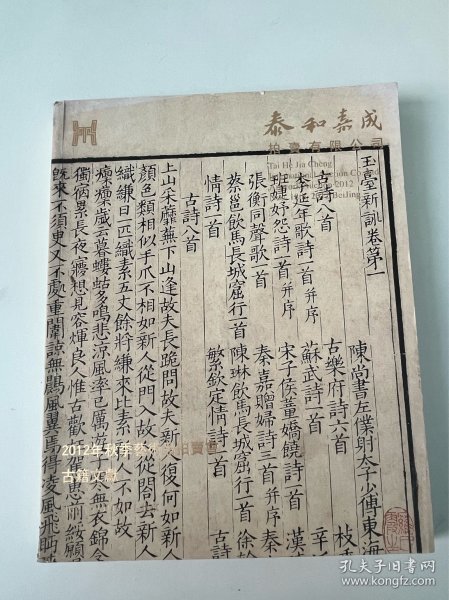 泰和嘉成
拍賣有限公司
Tai He Jia Cheng
2012
BeiJing
玉臺新詠卷第一
陳尚書左僕射太子少傅東海
古詩八首
古樂府詩六首
枚
李延年歌詩一首并序
蘇武詩一首
辛
班婕妤怨詩一首并序
宋子侯董嬌饒詩一首
漢
張衡同聲歌一首
秦嘉贈婦詩三首并序
秦
蔡邕飲馬長城窟行一首
陳琳飲馬長城窟行一首
徐幹
情詩一首
繁欽定情詩一首
古詩
古詩八首
上山采蘼蕪下山逢故夫長跪問故夫新人復何如新人
顏色類相似手爪不相如新人從門入故人從閤去新人
織縑日一匹織素五丈餘將縑來比素新人不如故
凜凜歲云暮螻蛄多鳴悲涼風率已厲遊子寒無衣錦衾
獨宿累長夜夢想見容輝良人惟古歡枉駕惠前綏願
既來不須臾又不處重闈諒無鷐風翼焉得淩風飛眄
2012年秋季藝術品拍賣會
古籍文獻
孔夫子旧书网
book.kongfz.com